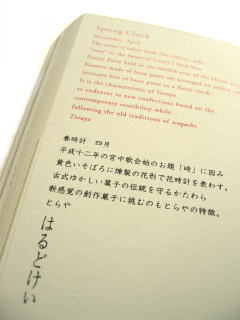 Spring Clock
Harudokei, April
The name is taken from the subject, toki,
"time" at the Imperial Court's New Year
Poetry Party held in the twelfth year of the Heisei
Flowers made of bean paste are arranged on yellow
intricate bits of bean paste to a floral clock.
It is the characteristic of Toraya
to endeavor to new confections based on the
contemporary sensibility while
following the old traditions of wagashi.
Toraya
春時計 四月
平成十二年の宮中歌会始のお題「時」に因み
黄色いそぼろに煉製の花形で花時計を表わす。
古式ゆかしい菓子の伝統を守るかたわら
新感覚の創作菓子に挑むのもとらやの特徴。
とらや
はるどけい